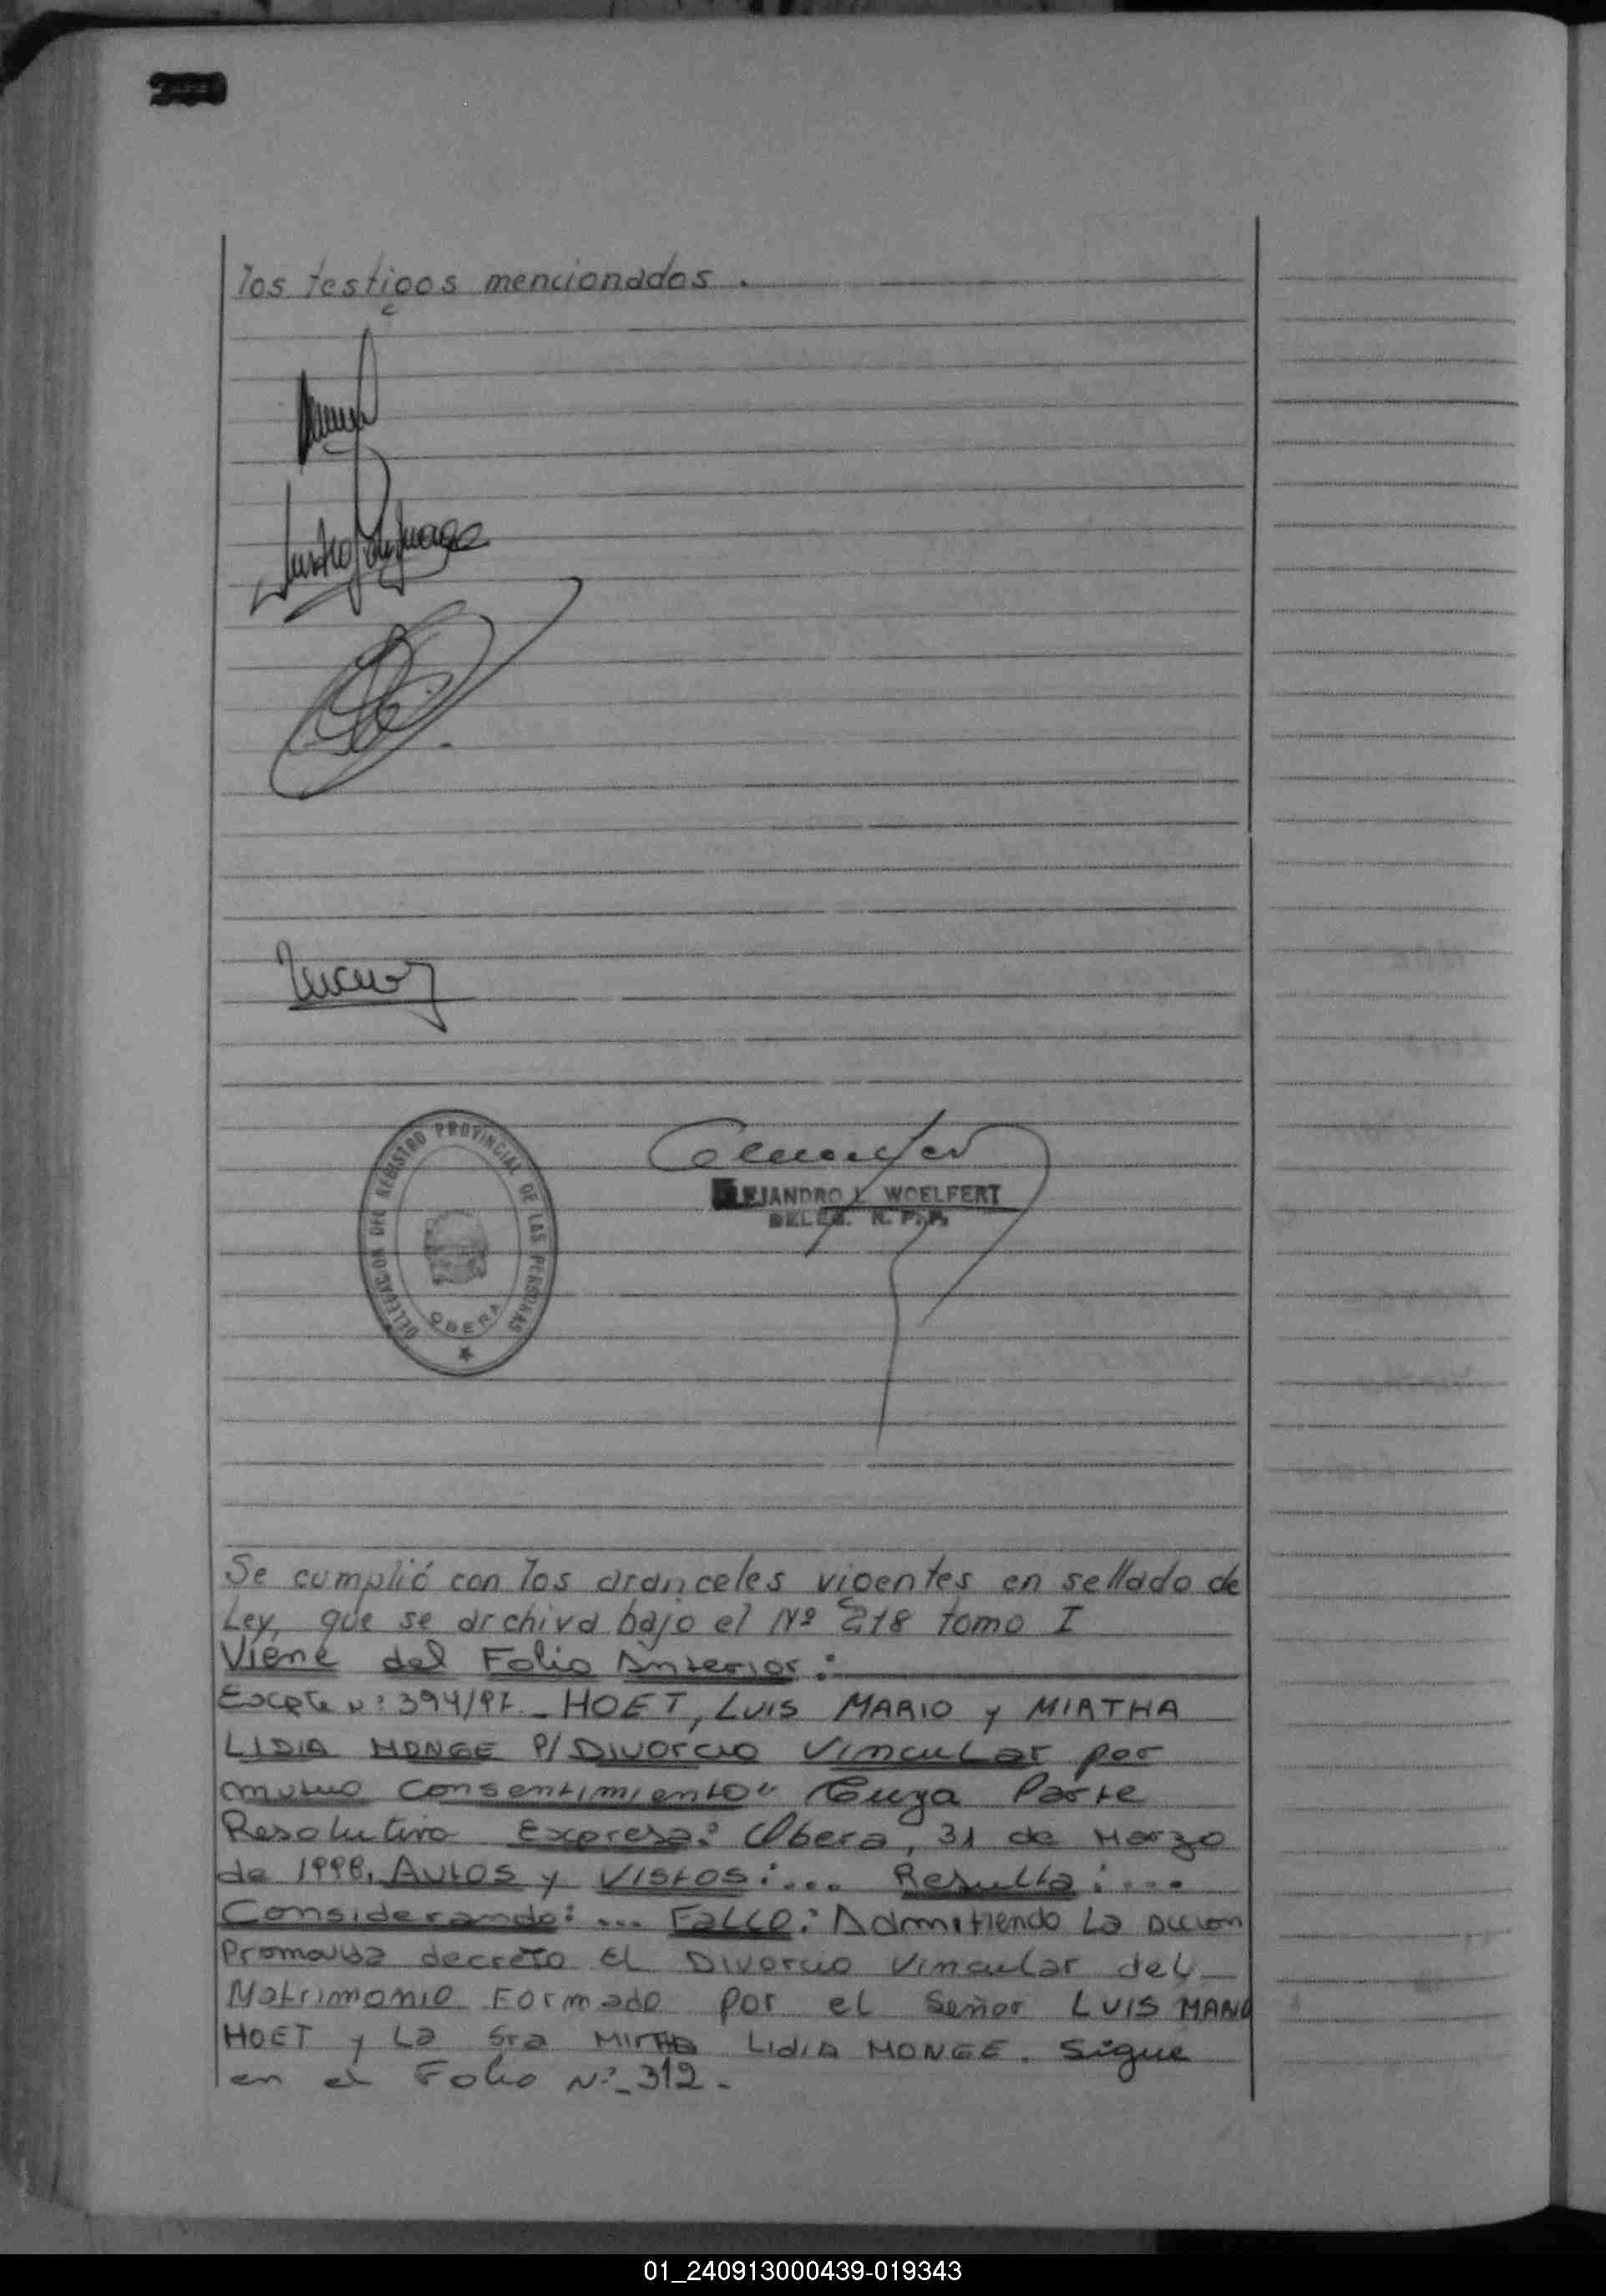 los testigos mencionados.
DELEGACION DEL REGISTRO PROVINCIAL DE LAS PERSONAS
OBERA
ALEJANDRO L. WOELFERT
DELEG. R. P. P.
Se cumplió con los aranceles vigentes en sellado de
Ley, que se archiva bajo el Nº 218 tomo I
Viene del Folio Anterior:
Expte Nº 394/97.- HOET, LUIS MARIO y MIRTHA
LIDIA MONGE P/ Divorcio Vincular por
mutuo consentimiento" Cuya Parte
Resolutiva Expresa: Obera, 31 de Marzo
de 1998. Autos y Vistos:... Resulta:...
Considerando: ... Fallo: Admitiendo La Accion
Promovida decreto El Divorcio Vincular del
Matrimonio Formado por el Señor LUIS MARIO
HOET y La Sra MIRTHA LIDIA MONGE. Sigue
en el Folio Nº-312-
01_240913000439-019343